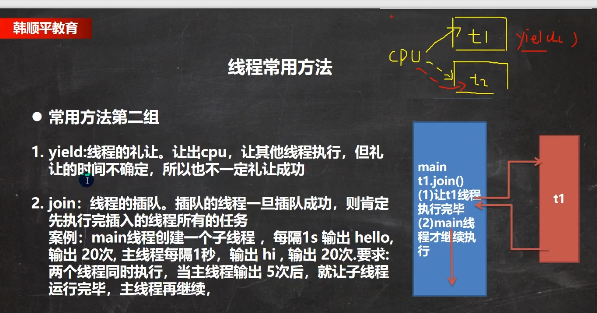 韩顺平教育
线程常用方法
CPU
t1
t2
yield( )
● 常用方法第二组
1. yield:线程的礼让。让出cpu，让其他线程执行，但礼
让的时间不确定，所以也不一定礼让成功
2. join：线程的插队。插队的线程一旦插队成功，则肯定
先执行完插入的线程所有的任务
案例：main线程创建一个子线程 ，每隔1s 输出 hello,
输出 20次, 主线程每隔1秒，输出 hi , 输出 20次.要求:
两个线程同时执行，当主线程输出 5次后，就让子线程
运行完毕，主线程再继续，
main
t1.join()
(1)让t1线程
执行完毕
(2)main线
程才继续执
行
t1